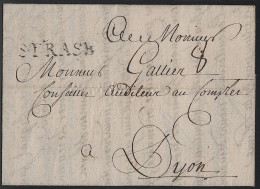 A Monsieur
STRASB
Monsieur Gallier 8
Conseiller auditeur au Comptes
a
Dijon